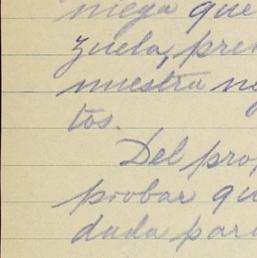 niega que
zuela, pre
nuestra ne
tos.
Del pro
probar qu
duda para